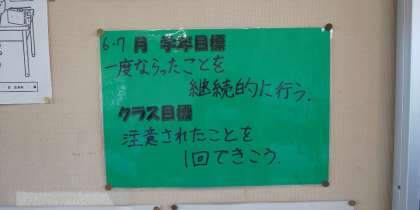 6.7 月 学年目標
一度ならったことを
継続的に行う.
クラス目標
注意されたことを
1回できこう.